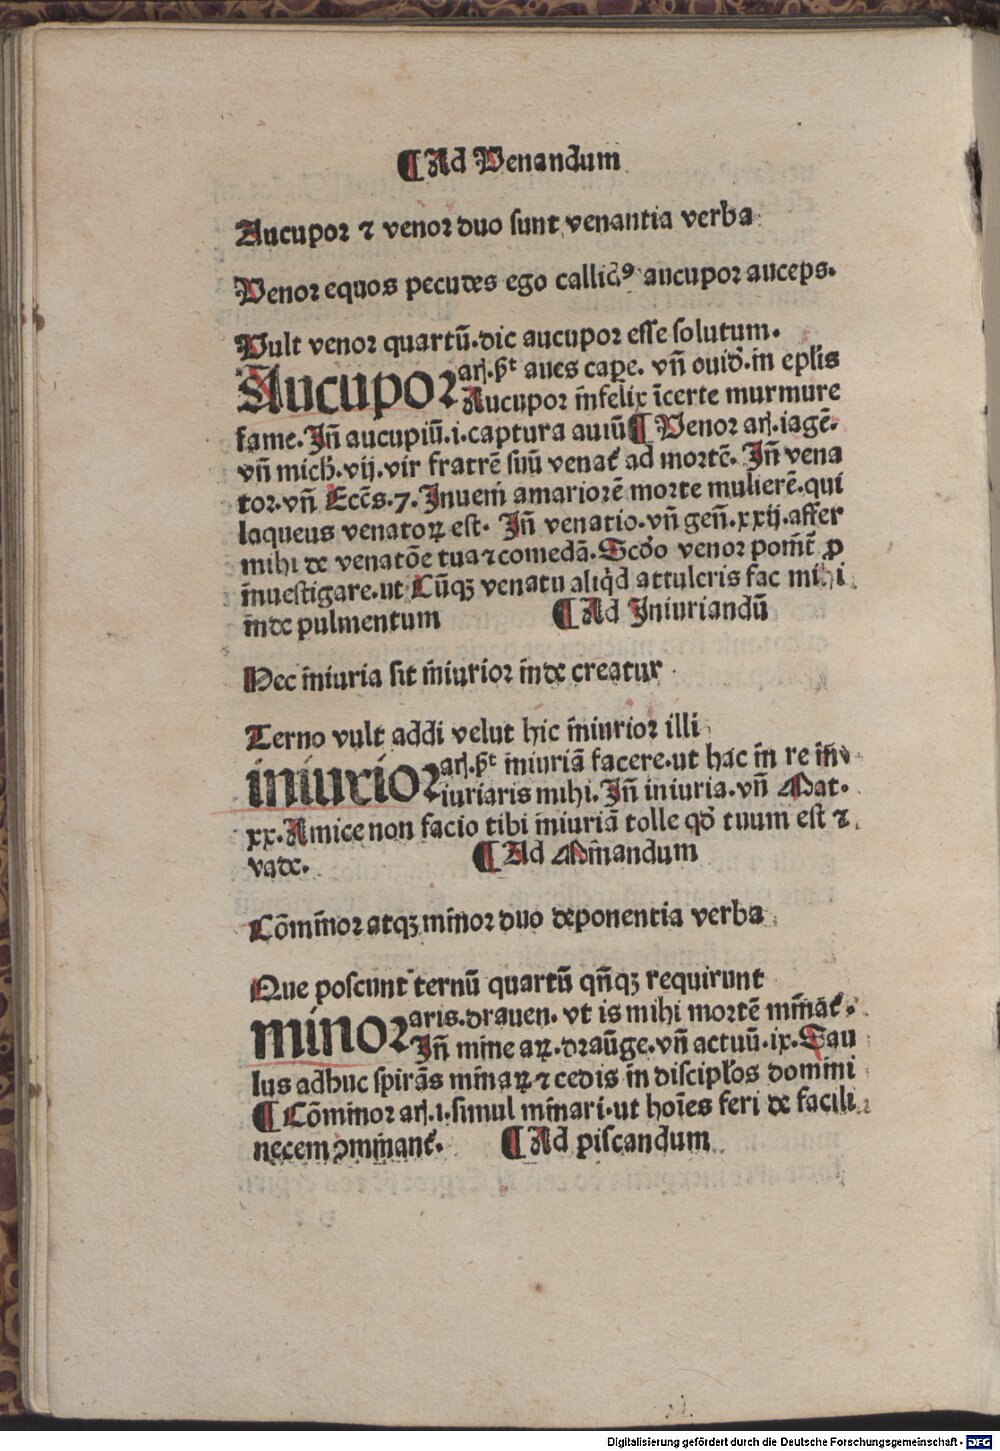 ¶Ad Venandum
Aucupor ⁊ venor duo sunt venantia verba
Venor equos pecudes ego callidꝰ aucupor auceps.
Vult venor quartū.dic aucupor esse solutum.
Aucupor arͥs.pͭ aues capͤe. vñ ouid̕.in epl̕is
Aucupor īnfelix īcerte murmure
fame.Jñ aucupiū.i.captura auiū¶Venor arͥs.iagē.
vñ mich̕.vij.vir fratrē suū venat᷑ ad mortē. Jñ vena
tor.vñ Eccēs.7.Jnueni amariorē morte mulierē.qui
laqueus venatoꝝ est. Jñ venatio.vñ geñ.xxij.affer
mihi de venatōe tua ⁊ comedā.Scd̕o venor ponit᷑ ꝓ
inuestigare.ut Cūqꝫ venatu aliqͥd attuleris fac mihi
inde pulmentum ¶Ad Iniuriandū
Hec iniuria sit iniurior inde creatur
Terno vult addi velut hic iniurior illi
iniurior arͥs.pͭ iniuriā facere.ut hac in re in
iuriaris mihi.Jñ iniuria.vñ Mat.
xx.Amice non facio tibi iniuriā tolle qd̕ tuum est ⁊
vade. ¶Ad Minandum
Cōminor atqꝫ minor duo deponentia verba
Que poscunt ternū quartū qñqꝫ requirunt
minor aris.drauen. vt is mihi mortē minat᷑.
Jñ mine aꝝ.draūge.vñ actuū.ix.Sau
lus adhuc spirās minaꝝ ⁊ cedis in discipl̕os domini
¶Cōminor arͥs.i.simul minari.ut hoīes feri de facili
necem ꝯminant᷑. ¶Ad piscandum
Digitalisierung gefördert durch die Deutsche Forschungsgemeinschaft - DFG